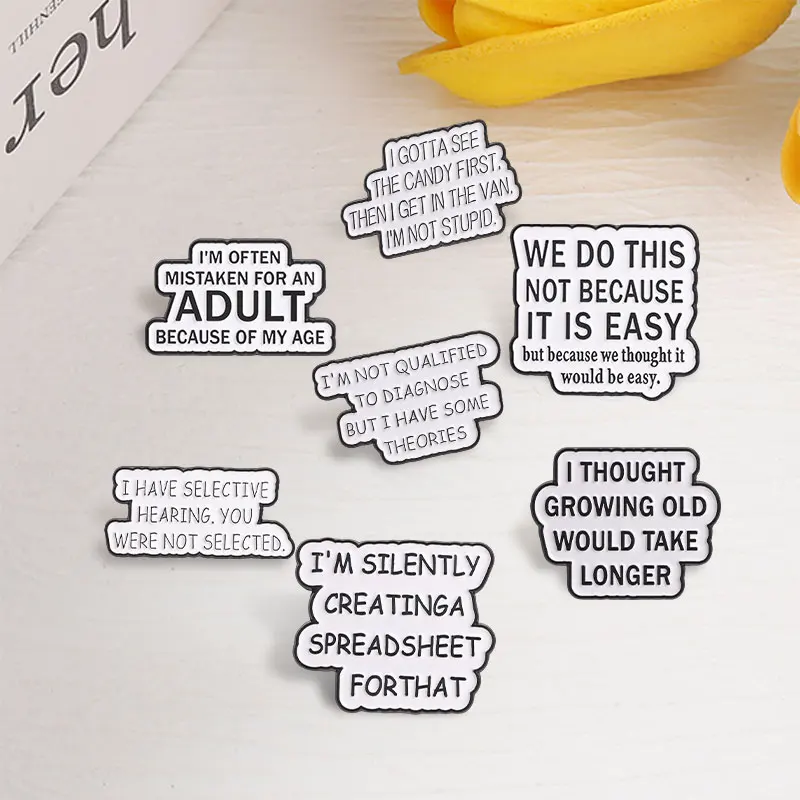 ENHILL
her
I GOTTA SEE
THE CANDY FIRST,
THEN I GET IN THE VAN.
I'M NOT STUPID.
I'M OFTEN
MISTAKEN FOR AN
ADULT
BECAUSE OF MY AGE
WE DO THIS
NOT BECAUSE
IT IS EASY
but because we thought it
would be easy.
I'M NOT QUALIFIED
TO DIAGNOSE
BUT I HAVE SOME
THEORIES
I HAVE SELECTIVE
HEARING, YOU
WERE NOT SELECTED.
I THOUGHT
GROWING OLD
WOULD TAKE
LONGER
I'M SILENTLY
CREATINGA
SPREADSHEET
FORTHAT